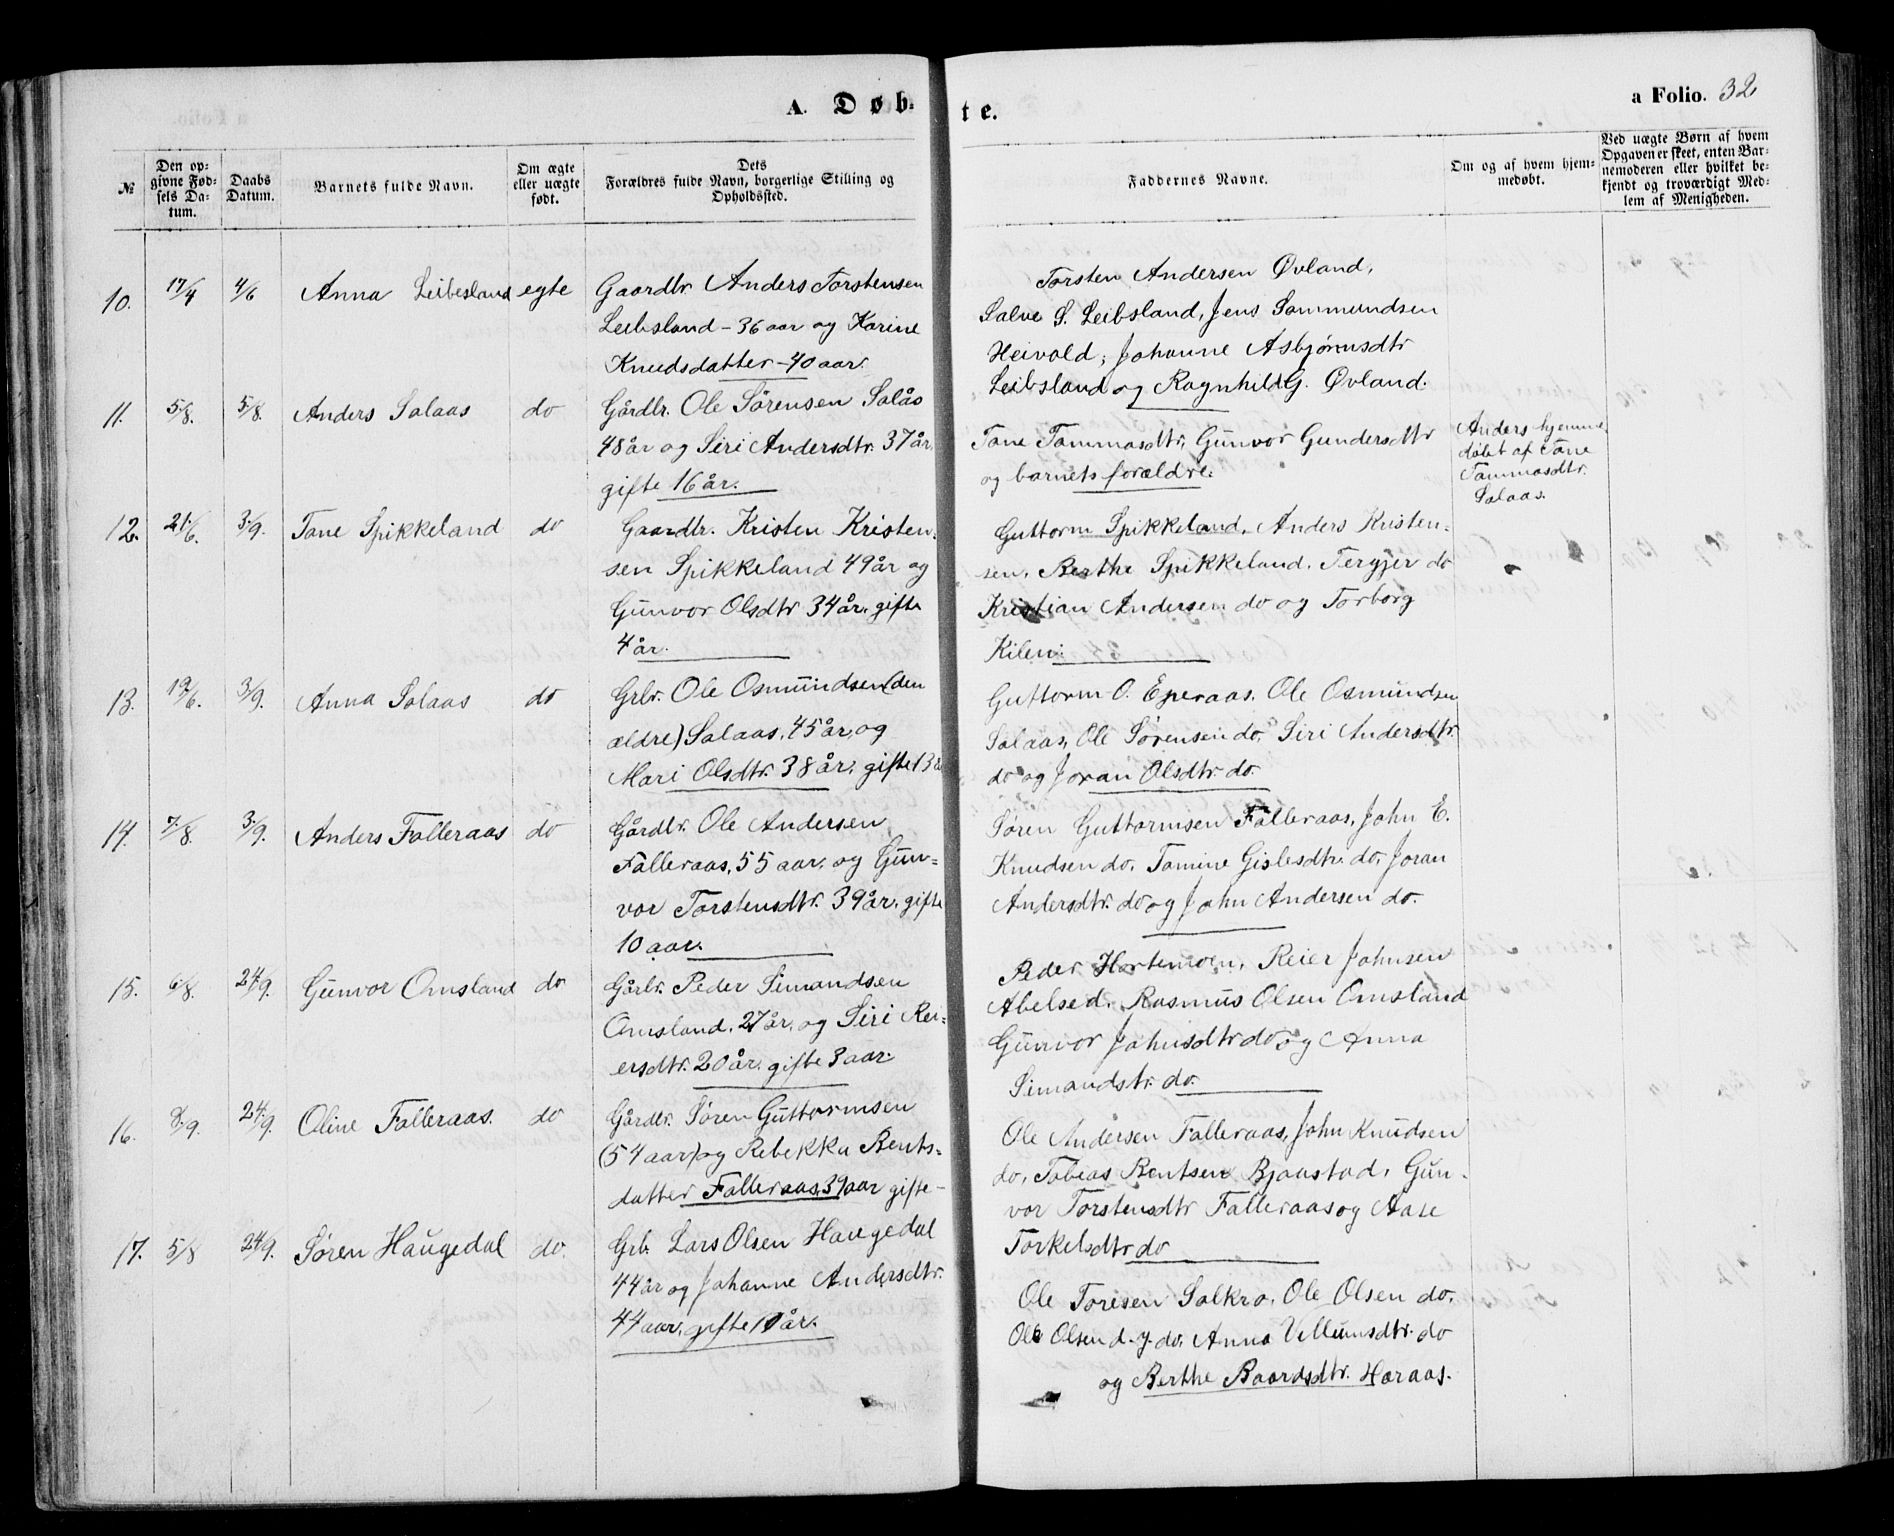 A. Døb-
te.
a Folio. 32
№
Den op-
givne Fød-
sels Da-
tum.
Daabs
Datum.
Barnets fulde Navn.
Om ægte
eller uægte
født.
Dets
Forældres fulde Navn, borgerlige Stilling og
Opholdssted.
Faddernes Navne.
Om og af hvem hjem-
medøbt.
Ved uægte Børn af hvem
Opgaven er skeet, enten Bar-
nemoderen eller hvilket be-
kjendt og troværdigt Med-
lem af Menigheden.
10. 17/4 4/6 Anna Leibesland egte
Gaardbr. Anders Torstensen
Leibsland - 36 aar og Karine
Knudsdatter - 40 aar.
Torsten Andersen Øvland,
Salve S. Leibsland, Jens Sammundsen
Heivold, Johanne Asbjørnsdtr
Leibsland og Ragnhild G. Øvland.
11. 5/8. 5/8. Anders Salaas do
Gårdbr. Ole Sørensen Salås
48 år og Siri Andersdtr. 37 år,
gifte 16 år.
Tone Tammasdtr, Gunvor Gundersdtr
og barnets forældre.
Anders hjemme
døbt af Tone
Tammasdtr.
Salaas.
12. 21/6. 3/9. Tone Spikkeland do
Gaardbr. Kristen Kristen-
sen Spikkeland 49 år og
Gunvor Olsdtr 34 år, gifte
4 år.
Guttorm Spikkeland, Anders Kristen-
sen, Berthe Spikkeland, Tergjer do
Kristian Andersen do og Torborg
Kilen.
13. 19/6. 3/9. Anna Salaas do
Grbr. Ole Osmundsen (den
ældre) Salaas, 45 år, og
Mari Olsdtr. 38 år, gifte 13 å
Guttorm O. Eperaas, Ole Osmundsen
Salaas, Ole Sørensen do, Siri Andersdtr.
do og Joran Olsdtr. do.
14. 7/8. 3/9. Anders Falleraas do
Gårdbr. Ole Andersen
Falleraas, 55 aar, og Gun-
vor Torstensdtr. 39 år, gifte
10 aar.
Søren Guttormsen Falleraas, John E.
Knudsen do, Tomine Gislesdtr. do, Joran
Andersdtr. do og John Andersen do.
15. 6/8. 24/9. Gunvor Omsland do
Gårbr. Peder Simondsen
Omsland, 27 år, og Siri Rei-
ersdtr. 20 år, gifte 3 aar.
Peder Hortemoen, Reier Johnsen
Abelsed, Rasmus Olsen Omsland
Gunvor Johnsdtr do og Anna
Simondstr. do.
16. 2/9. 24/9. Oline Falleraas. do
Gårdbr. Søren Guttormsen
(54 aar) og Rebekka Bents-
datter Falleraas, 39 aar gifte -
Ole Andersen Falleraas, John Knudsen
do, Tobias Bentsen Bjaastad, Gun-
vor Torstensdtr Falleraas og Aase
Torkelsdtr do
17. 5/8 24/9. Søren Haugedal do.
Grb. Lars Olsen Haugedal
44 år og Johanne Andersdtr.
44 aar, gifte år.
Ole Toresen Salkro, Ole Olsen do,
Ole Olsen d. y. do, Anna Villumsdtr. do
og Berthe Baardsdtr. Høraas.